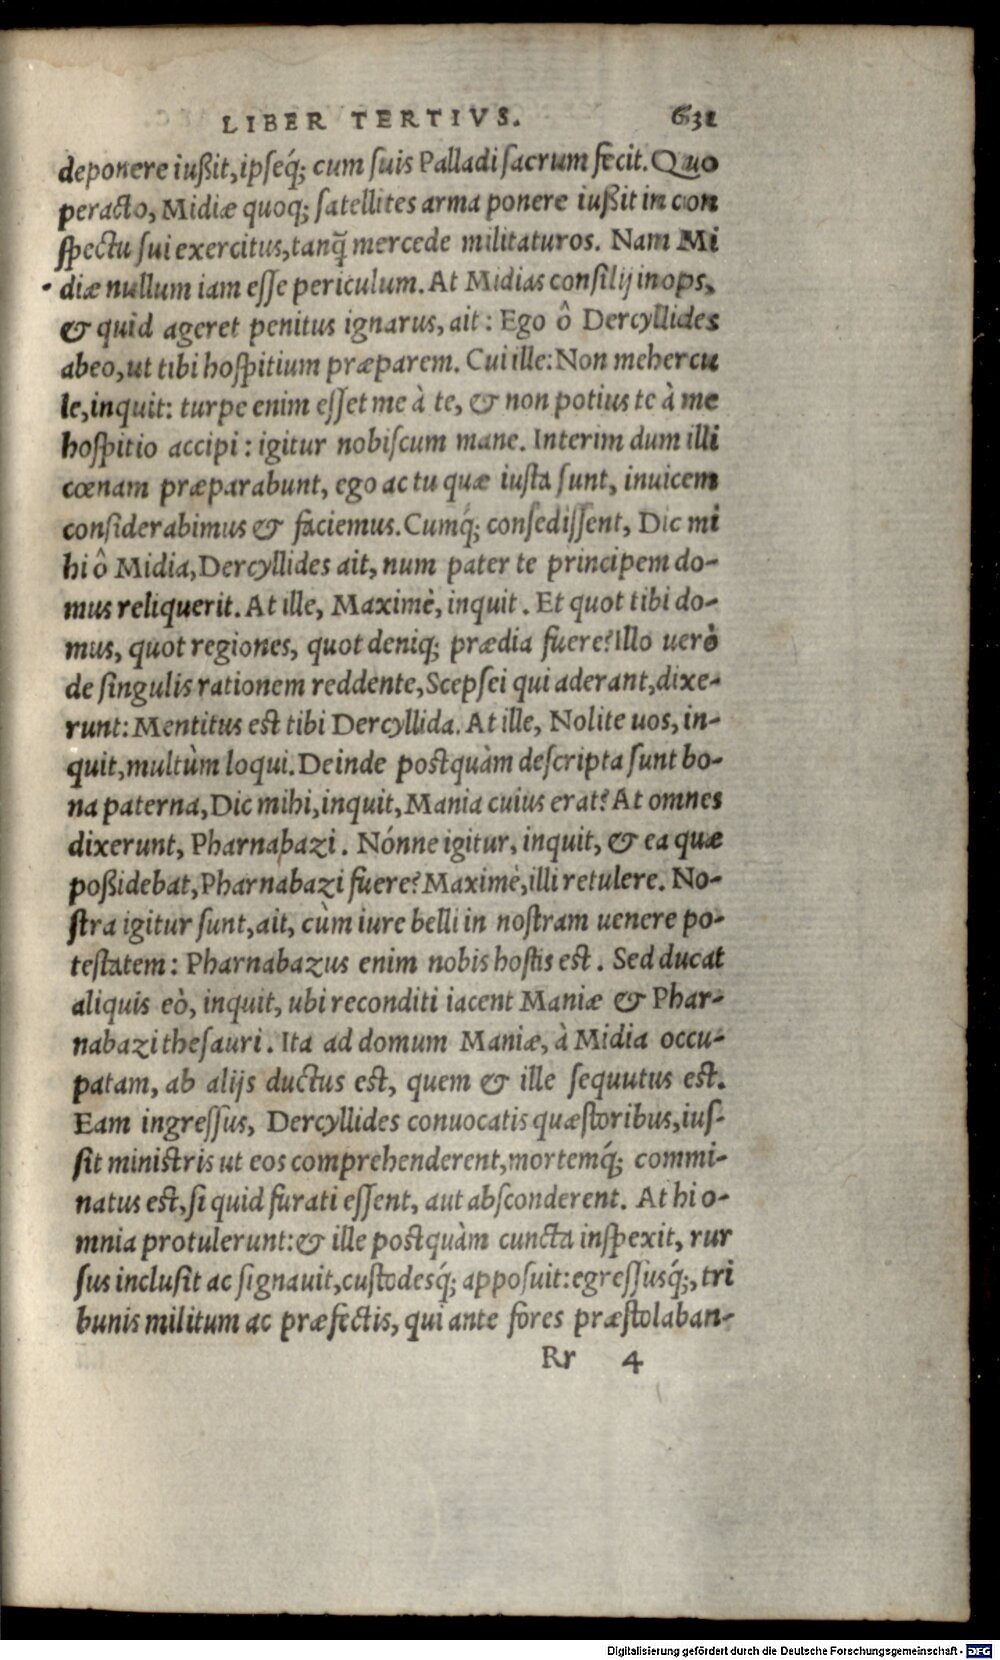 LIBER TERTIVS. 631
deponere iußit, ipseq́; cum suis Palladi sacrum fecit. Quo
peracto, Midiæ quoq; satellites arma ponere iußit in con
spectu sui exercitus, tanq̃ mercede militaturos. Nam Mi
diæ nullum iam esse periculum. At Midias consilij inops,
& quid ageret penitus ignarus, ait: Ego ô Dercyllides
abeo, ut tibi hospitium præparem. Cui ille: Non mehercu
le, inquit: turpe enim esset me à te, & non potius te à me
hospitio accipi: igitur nobiscum mane. Interim dum illi
cœnam præparabunt, ego ac tu quæ iusta sunt, inuicem
considerabimus & faciemus. Cumq́; consedissent, Dic mi
hi ô Midia, Dercyllides ait, num pater te principem do-
mus reliquerit. At ille, Maximè, inquit. Et quot tibi do-
mus, quot regiones, quot deniq; prædia fuere? Illo uerò
de singulis rationem reddente, Scepsei qui aderant, dixe-
runt: Mentitus est tibi Dercyllida. At ille, Nolite uos, in-
quit, multùm loqui. Deinde postquàm descripta sunt bo-
na paterna, Dic mihi, inquit, Mania cuius erat? At omnes
dixerunt, Pharnabazi. Nónne igitur, inquit, & ea quæ
poßidebat, Pharnabazi fuere? Maximè, illi retulere. No-
stra igitur sunt, ait, cùm iure belli in nostram uenere po-
testatem: Pharnabazus enim nobis hostis est. Sed ducat
aliquis eò, inquit, ubi reconditi iacent Maniæ & Phar-
nabazi thesauri. Ita ad domum Maniæ, à Midia occu-
patam, ab alijs ductus est, quem & ille sequutus est.
Eam ingressus, Dercyllides conuocatis quæstoribus, ius-
sit ministris ut eos comprehenderent, mortemq́; commi-
natus est, si quid furati essent, aut absconderent. At hi o-
mnia protulerunt: & ille postquàm cuncta inspexit, rur
sus inclusit ac signauit, custodesq́; apposuit: egressusq́;, tri
bunis militum ac præfectis, qui ante fores præstolaban-
Rr 4
Digitalisierung gefördert durch die Deutsche Forschungsgemeinschaft - DFG